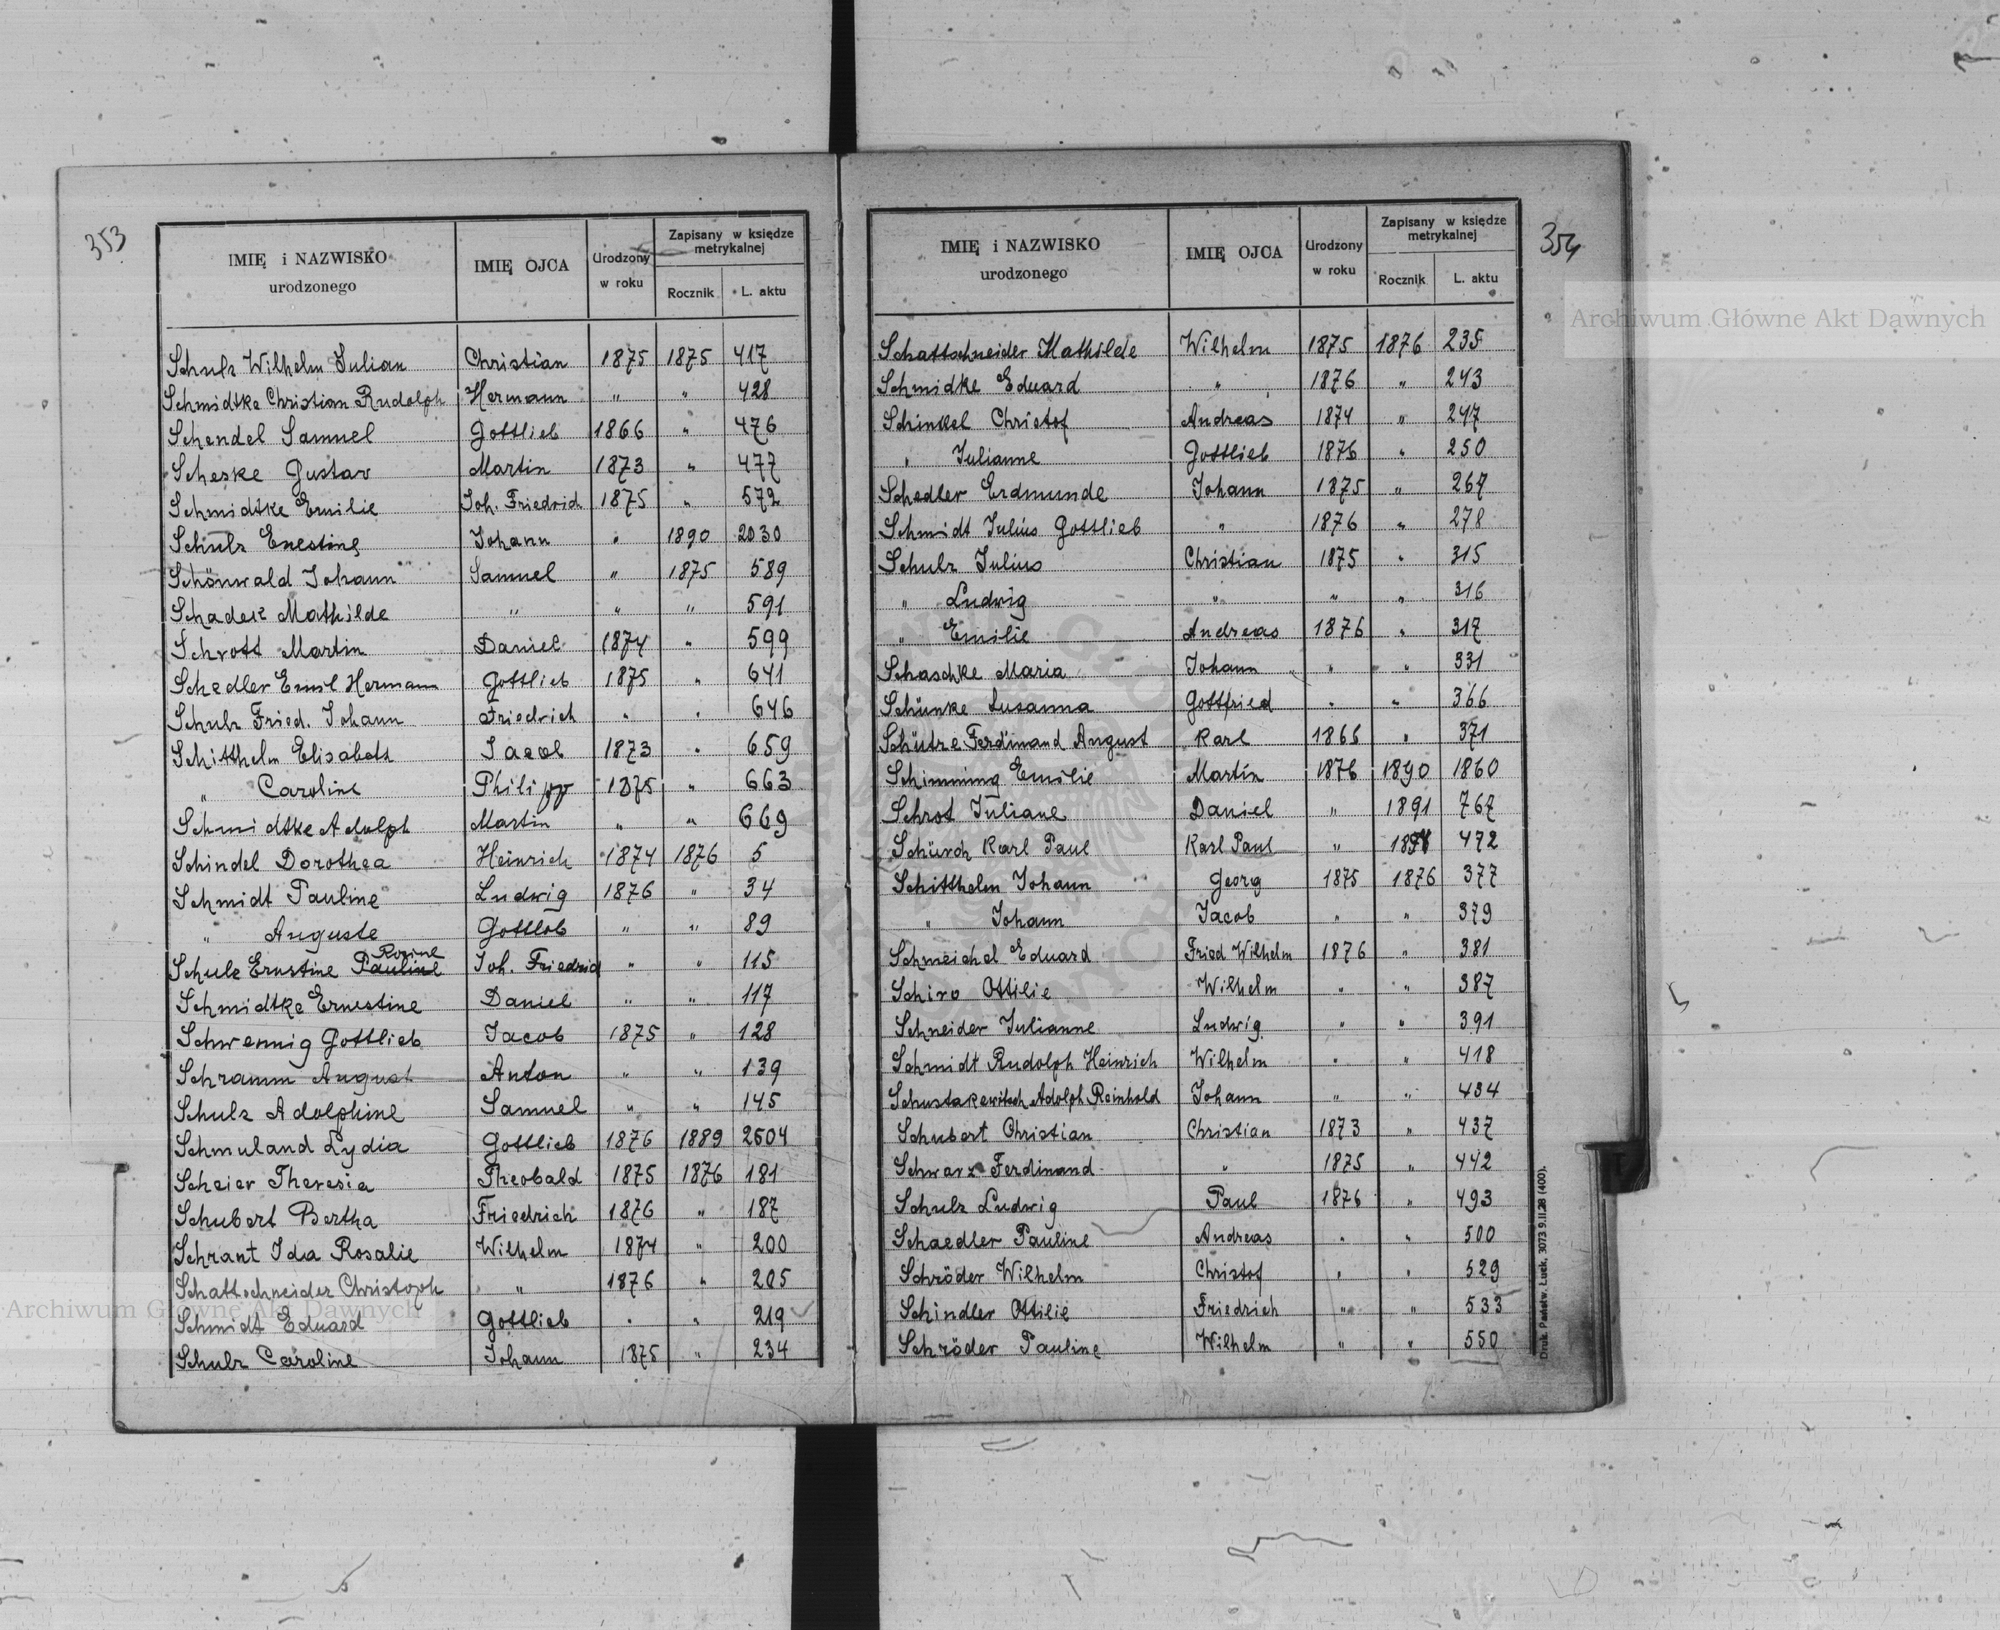 353
IMIĘ i NAZWISKO urodzonego IMIĘ OJCA Urodzony w roku Zapisany w księdze metrykalnej Rocznik L. aktu
Schulz Wilhelm Julian Christian 1875 1875 417
Schmidtke Christian Rudolph Hermann " " 428
Schendel Samuel Gottlieb 1866 " 476
Scheske Gustav Martin 1873 " 477
Schmidtke Emilie Joh. Friedrich 1875 " 572
Schulz Ernestine Johann " 1890 2030
Schönwald Johann Samuel " 1875 589
Schadek Mathilde " " " 591
Schrott Martin Daniel 1874 " 599
Schedler Emil Hermann Gottlieb 1875 " 641
Schulz Fried. Johann Friedrich " " 646
Schitthelm Elisabeth Jacob 1873 " 659
" Caroline Philipp 1875 " 663
Schmidtke Adolph Martin " " 669
Schindel Dorothea Heinrich 1874 1876 5
Schmidt Pauline Ludwig 1876 " 34
" Auguste Gottlob " " 89
Rosine
Schulz Ernstine Pauline Joh. Friedrich " " 115
Schmidtke Ernestine Daniel " " 117
Schwennig Gottlieb Jacob 1875 " 128
Schramm August Anton " " 139
Schulz Adolphine Samuel " " 145
Schmuland Lydia Gottlieb 1876 1889 2504
Scheier Theresia Theobald 1875 1876 181
Schubert Bertha Friedrich 1876 " 187
Schrant Ida Rosalie Wilhelm 1874 " 200
Schattschneider Christoph " 1876 " 205
Schmidt Eduard Gottlieb " " 219
Schulz Caroline Johann 1875 " 234
354
IMIĘ i NAZWISKO urodzonego IMIĘ OJCA Urodzony w roku Zapisany w księdze metrykalnej Rocznik L. aktu
Schattschneider Mathilde Wilhelm 1875 1876 235
Schmidke Eduard " 1876 " 243
Schinkel Christof Andreas 1874 " 247
" Julianne Gottlieb 1876 " 250
Schedler Erdmunde Johann 1875 " 267
Schmidt Julius Gottlieb " 1876 " 278
Schulz Julius Christian 1875 " 315
" Ludwig " " " 316
" Emilie Andreas 1876 " 317
Schaschke Maria Johann " " 331
Schünke Susanna Gottfried " " 366
Schütze Ferdinand August Karl 1866 " 371
Schimming Emilie Martin 1876 1890 1860
Schrot Juliane Daniel " 1891 767
Schürch Karl Paul Karl Paul " 472
Schitthelm Johann Georg 1875 1876 377
" Johann Jacob " " 379
Schmeichel Eduard Fried Wilhelm 1876 " 381
Schiro Ottilie Wilhelm " " 387
Schneider Julianne Ludwig " " 391
Schmidt Rudolph Heinrich Wilhelm " " 418
Schustakewitsch Adolph Reinhold Johann " " 434
Schubert Christian Christian 1873 " 437
Schwarz Ferdinand " 1875 " 442
Schulz Ludwig Paul 1876 " 493
Schaedler Pauline Andreas " " 500
Schröder Wilhelm Christof " " 529
Schindler Ottilie Friedrich " " 533
Schröder Pauline Wilhelm " " 550
Druk. Państw. Łuck. 3073 9.II.28 (400).
Archiwum Główne Akt Dawnych
Archiwum Główne Akt Dawnych